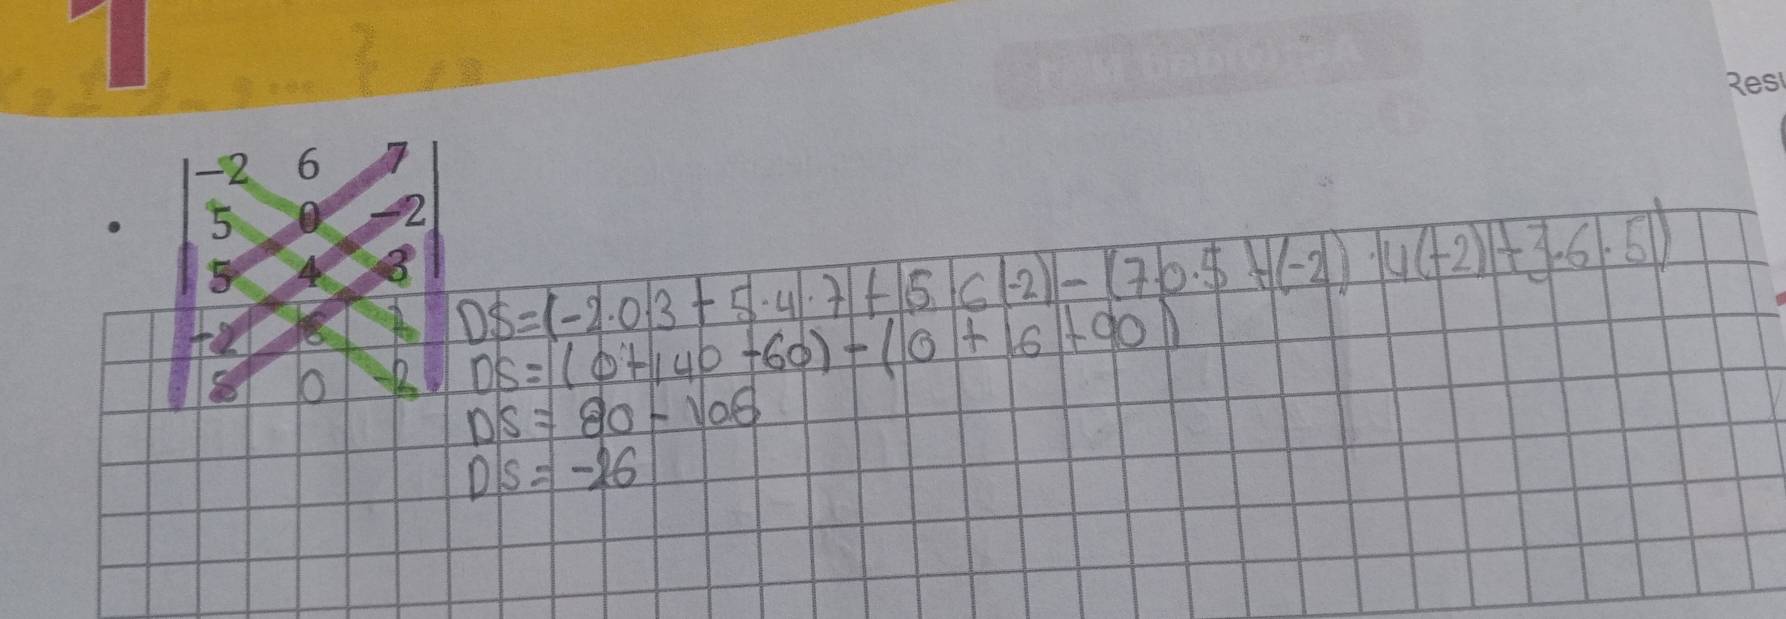 1
Resu
-2 6 7
5 0 -2
5 4 3
-2 6 7
5 0 -2
DS=(-2.0.3 + 5.4.7 + 5.6(-2) - (7.0.5 + (-2).4(-2) + 3.6.5)
DS=(0+140-60)-(0+16+90)
DS= 80-106
DS= -26